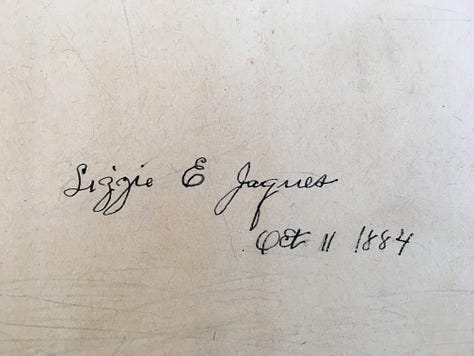 Lizzie E Jaques
Oct 11 1884